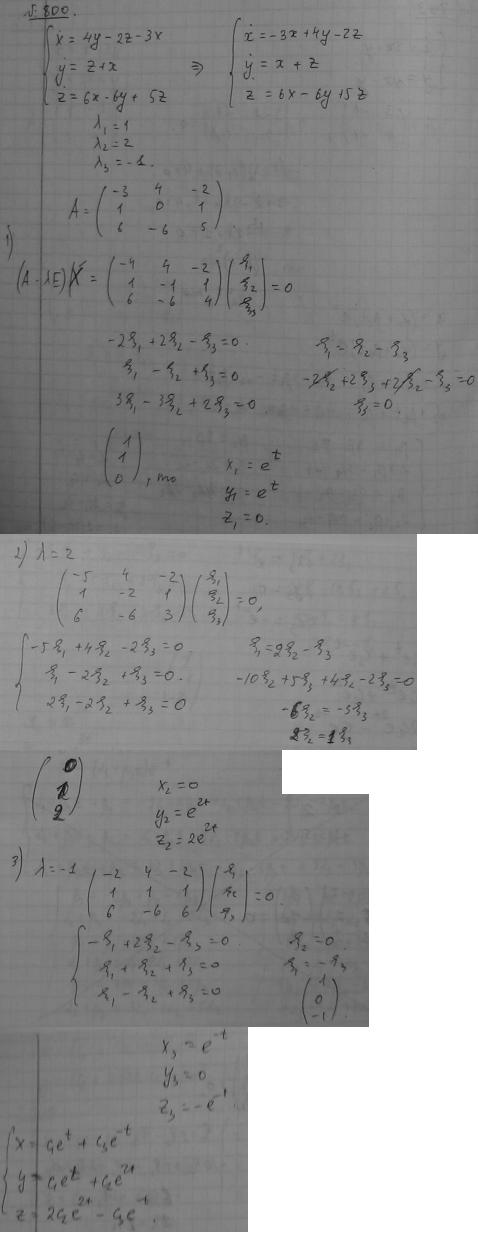 №800.
{ ẋ = 4y - 2z - 3x
ẏ = z + x
ż = 6x - 6y + 5z
⇒ { ẋ = -3x + 4y - 2z
ẏ = x + z
z = 6x - 6y + 5z
λ₁ = 1
λ₂ = 2
λ₃ = -1.
A = ( -3 4 -2
1 0 1
6 -6 5 )
1)
(A - λE)X = ( -4 4 -2
1 -1 1
6 -6 4 ) ( ξ₁
ξ₂
ξ₃ ) = 0
-2ξ₁ + 2ξ₂ - ξ₃ = 0.
ξ₁ - ξ₂ + ξ₃ = 0
3ξ₁ - 3ξ₂ + 2ξ₃ = 0.
ξ₁ = ξ₂ - ξ₃
-2ξ₂ + 2ξ₃ + 2ξ₂ - ξ₃ = 0
ξ₃ = 0.
( 1
1
0 ), то
x₁ = eᵗ
y₁ = eᵗ
z₁ = 0.
2) λ = 2
( -5 4 -2
1 -2 1
6 -6 3 ) ( ξ₁
ξ₂
ξ₃ ) = 0,
{ -5ξ₁ + 4ξ₂ - 2ξ₃ = 0
ξ₁ - 2ξ₂ + ξ₃ = 0.
2ξ₁ - 2ξ₂ + ξ₃ = 0
ξ₁ = 2ξ₂ - ξ₃
-10ξ₂ + 5ξ₃ + 4ξ₂ - 2ξ₃ = 0
-6ξ₂ = -3ξ₃
2ξ₂ = 1ξ₃
( 0
1
2 )
x₂ = 0
y₂ = e²ᵗ
z₂ = 2e²ᵗ
3) λ = -1 ( -2 4 -2
1 1 1
6 -6 6 ) ( ξ₁
ξ₂
ξ₃ ) = 0.
{ -ξ₁ + 2ξ₂ - ξ₃ = 0
ξ₁ + ξ₂ + ξ₃ = 0
ξ₁ - ξ₂ + ξ₃ = 0
ξ₂ = 0.
ξ₁ = -ξ₃
( 1
0
-1 ).
x₃ = e⁻ᵗ
y₃ = 0
z₃ = -e⁻ᵗ
{ x = c₁eᵗ + c₃e⁻ᵗ
y = c₁eᵗ + c₂e²ᵗ
z = 2c₂e²ᵗ - c₃e⁻ᵗ.